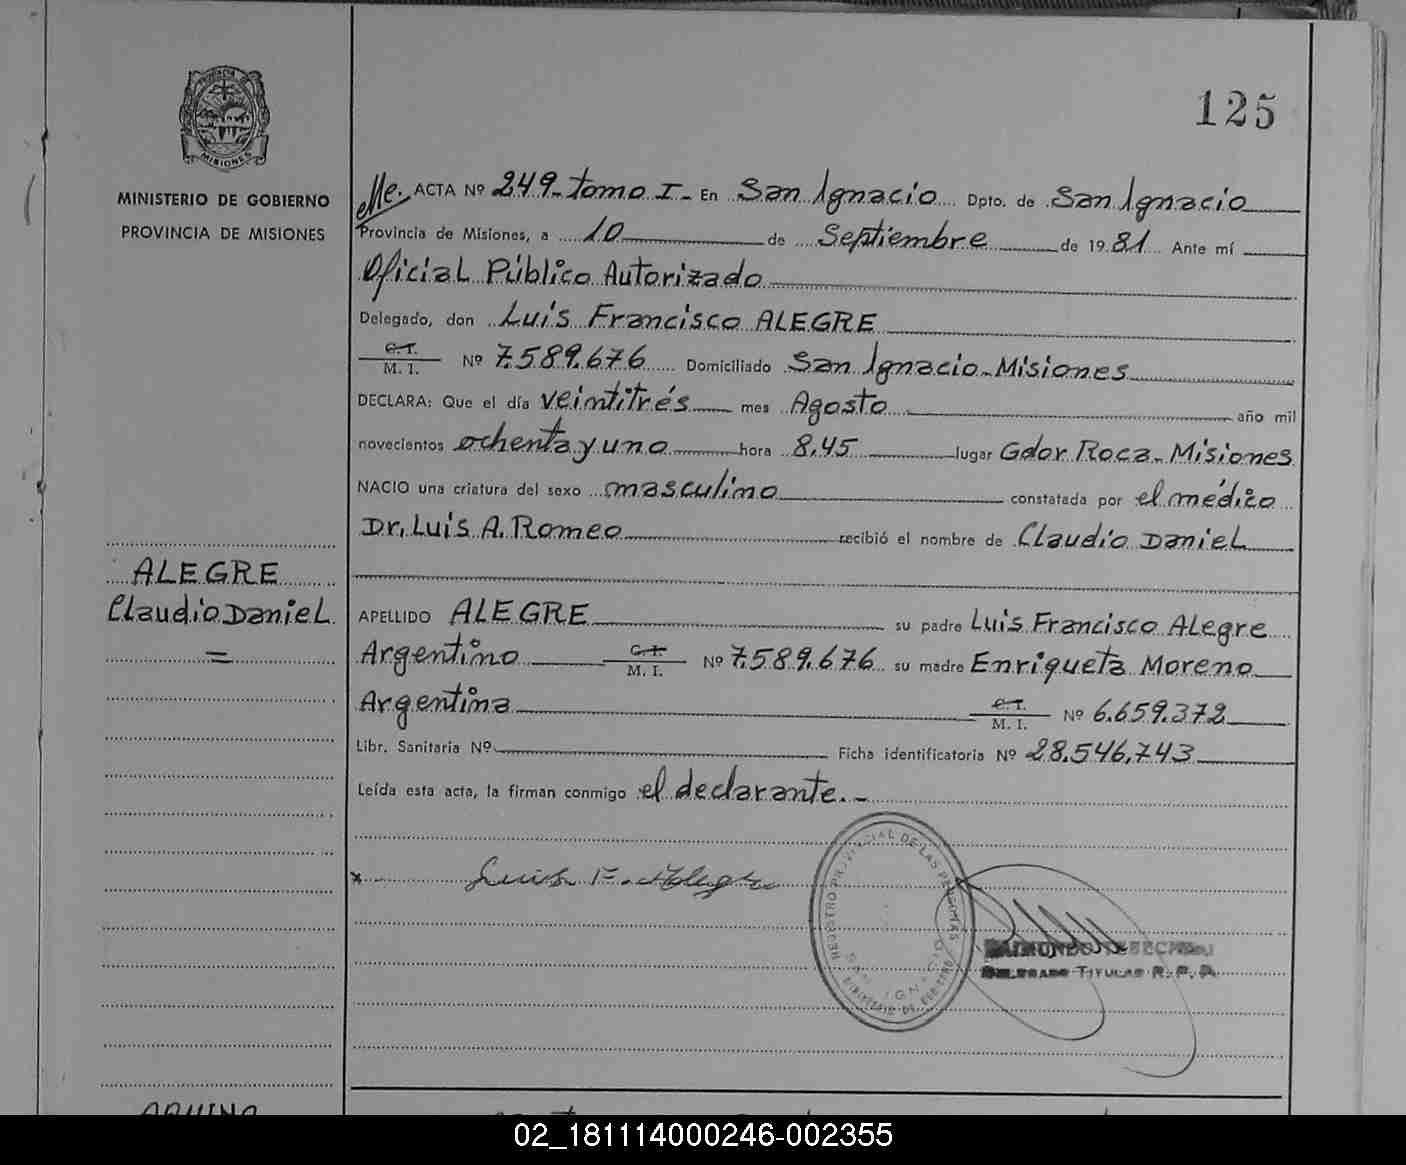 125
PROVINCIA DE
MISIONES
MINISTERIO DE GOBIERNO
PROVINCIA DE MISIONES
ACTA Nº 249 - tomo I - En San Ignacio Dpto. de San Ignacio
Provincia de Misiones, a 10 de Septiembre de 1981 Ante mí
Oficial Público Autorizado
Delegado, don Luis Francisco ALEGRE
C.I. / M. I. Nº 7.589.676 Domiciliado San Ignacio - Misiones
DECLARA: Que el día veintitrés mes Agosto año mil
novecientos ochenta y uno hora 8,45 lugar Gdor Roca - Misiones
NACIO una criatura del sexo masculino constatada por el médico
Dr, Luis A. Romeo recibió el nombre de Claudio Daniel
ALEGRE
Claudio Daniel
=
APELLIDO ALEGRE su padre Luis Francisco Alegre
Argentino C.I. / M. I. Nº 7.589.676 su madre Enriqueta Moreno
Argentina C.I. / M. I. Nº 6.659.372
Libr. Sanitaria Nº Ficha identificatoria Nº 28.546.743
Leída esta acta, la firman conmigo el declarante. -
x Luis F. Alegre
REGISTRO PROVINCIAL DE LAS PERSONAS
SAN IGNACIO
MINISTERIO DE GOBIERNO
RAIMUNDO
DELEGADO TITULAR R. P. P.
02_181114000246-002355